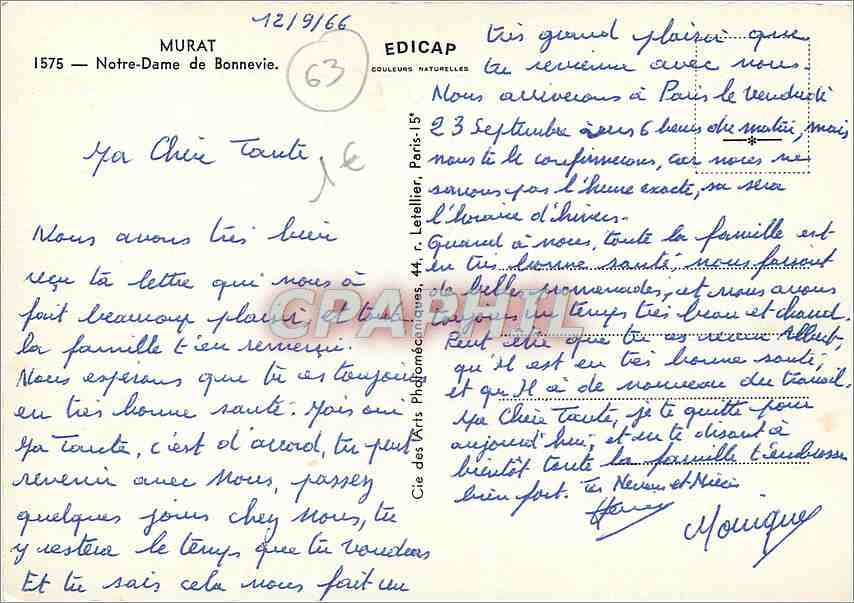 12/9/66
MURAT
1575 — Notre-Dame de Bonnevie.
63
EDICAP
COULEURS NATURELLES
1€
Ma Chère Tante
Nous avons très bien
reçu ta lettre qui nous à
fait beaucoup plaisir, et tout
la famille t'en remerçi.
Nous espérons que tu es toujour
en très bonne santé. Mais oui
Ma Tante, c'est d'accord, tu peut
revenir avec Nous, passez
quelques jours chez Nous, tu
y restera le temps que tu voudras
Et tu sais cela nous fait un
Cie des Arts Photomécaniques, 44, r. Letellier, Paris-15e
très grand plaisir que
tu revienne avec nous.
Nous arriverons à Paris le Vendredi
23 Septembre à 6 heures du matin, mais
nous te le confirmerons, car nous ne
savons pas l'heure exacte, sa sera
l'horaire d'hivers.
Quand à nous, toute la famille est
en très bonne santé, nous faisont
de belles promenades, et nous avons
toujours un temps très beau et chaud.
Peut être que tu as Albert,
qu'Il est en très bonne santé,
et qu'Il à de nouveau du travail.
Ma Chère Tante, je te quitte pour
aujourd'hui, et en te disant à
bientôt toute la famille t'embrasse
bien fort. Tes Neveu et Nièce
Monique
CPAPHIL